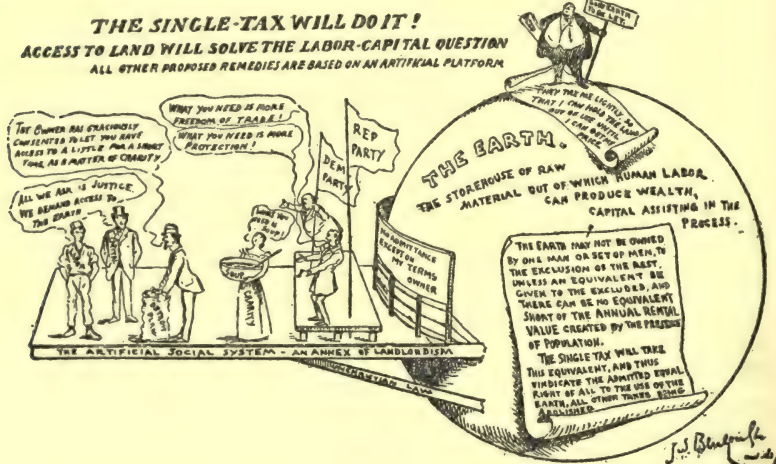 THE SINGLE-TAX WILL DO IT!
ACCESS TO LAND WILL SOLVE THE LABOR-CAPITAL QUESTION
ALL OTHER PROPOSED REMEDIES ARE BASED ON AN ARTIFICIAL PLATFORM
THE OWNER HAS GRACIOUSLY
CONSENTED TO LET YOU HAVE
ACCESS TO A LITTLE FOR A SHORT
TIME, AS A MATTER OF CHARITY
ALL WE ASK IS JUSTICE.
WE DEMAND ACCESS TO
THE EARTH
WHAT YOU NEED IS MORE
FREEDOM OF TRADE!
WHAT YOU NEED IS MORE
PROTECTION!
DEM
PARTY
REP
PARTY
SOUP
CHARITY
NO ADMITTANCE
EXCEPT ON
MY TERMS
OWNER
THE ARTIFICIAL SOCIAL SYSTEM - AN ANNEX OF LANDLORDISM
LAW
EARTH
TO LET.
THEY TAX ME LIGHTLY SO
THAT I CAN HOLD THE LAND
OUT OF USE UNTIL
I CAN GET MY
PRICE
THE EARTH.
THE STOREHOUSE OF RAW
MATERIAL OUT OF WHICH HUMAN LABOR
CAN PRODUCE WEALTH,
CAPITAL ASSISTING IN THE
PROCESS.
THE EARTH MAY NOT BE OWNED
BY ONE MAN OR SET OF MEN, TO
THE EXCLUSION OF THE REST,
UNLESS AN EQUIVALENT BE
GIVEN TO THE EXCLUDED, AND
THERE CAN BE NO EQUIVALENT
SHORT OF THE ANNUAL RENTAL
VALUE CREATED BY THE PRESENCE
OF POPULATION.
THE SINGLE TAX WILL TAKE
THIS EQUIVALENT, AND THUS
VINDICATE THE ADMITTED EQUAL
RIGHT OF ALL TO THE USE OF THE
EARTH, ALL OTHER TAXES BEING
ABOLISHED
J.W. Bengough